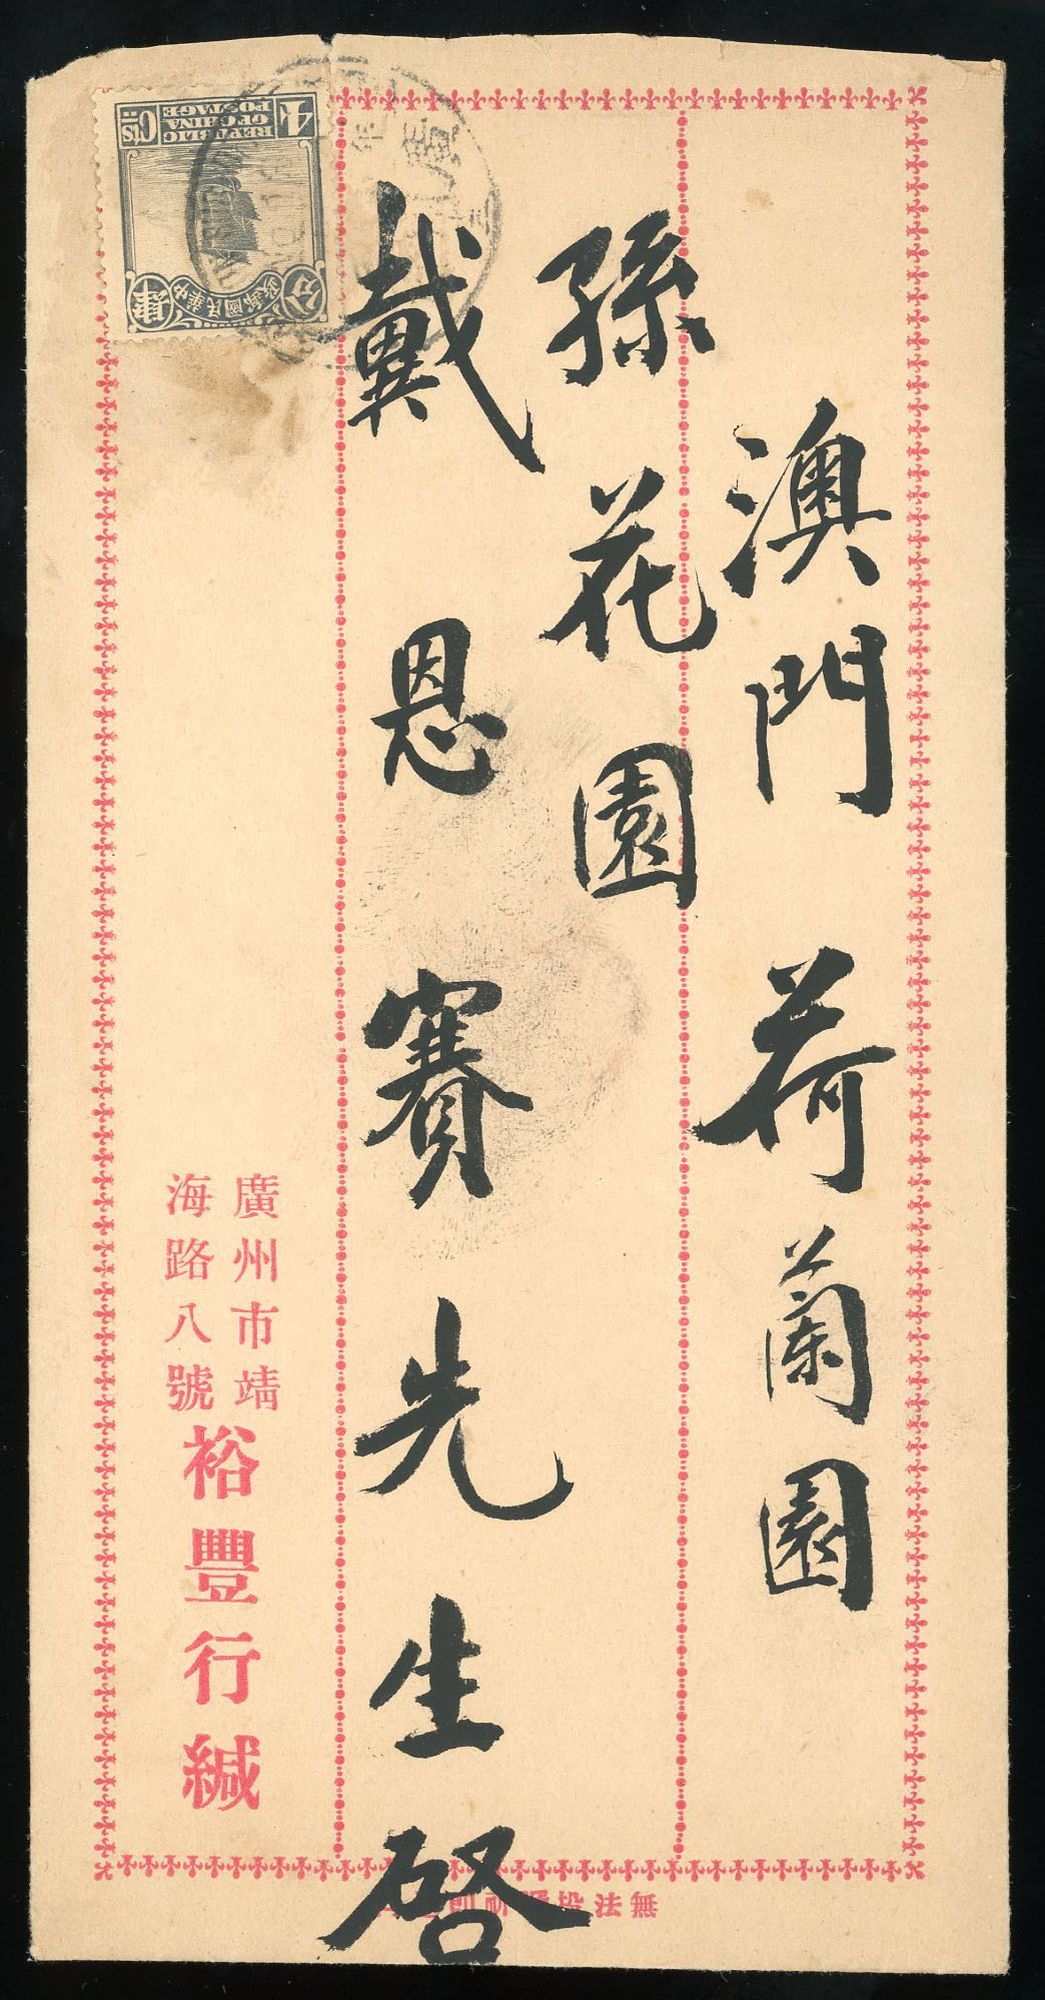 澳門荷蘭園
孫花園
戴恩賽先生啓
廣州市靖
海路八號
裕豐行緘
無法投
4 Cts
REPUBLIC
OF CHINA
POSTAGE
中華民國郵政
肆分